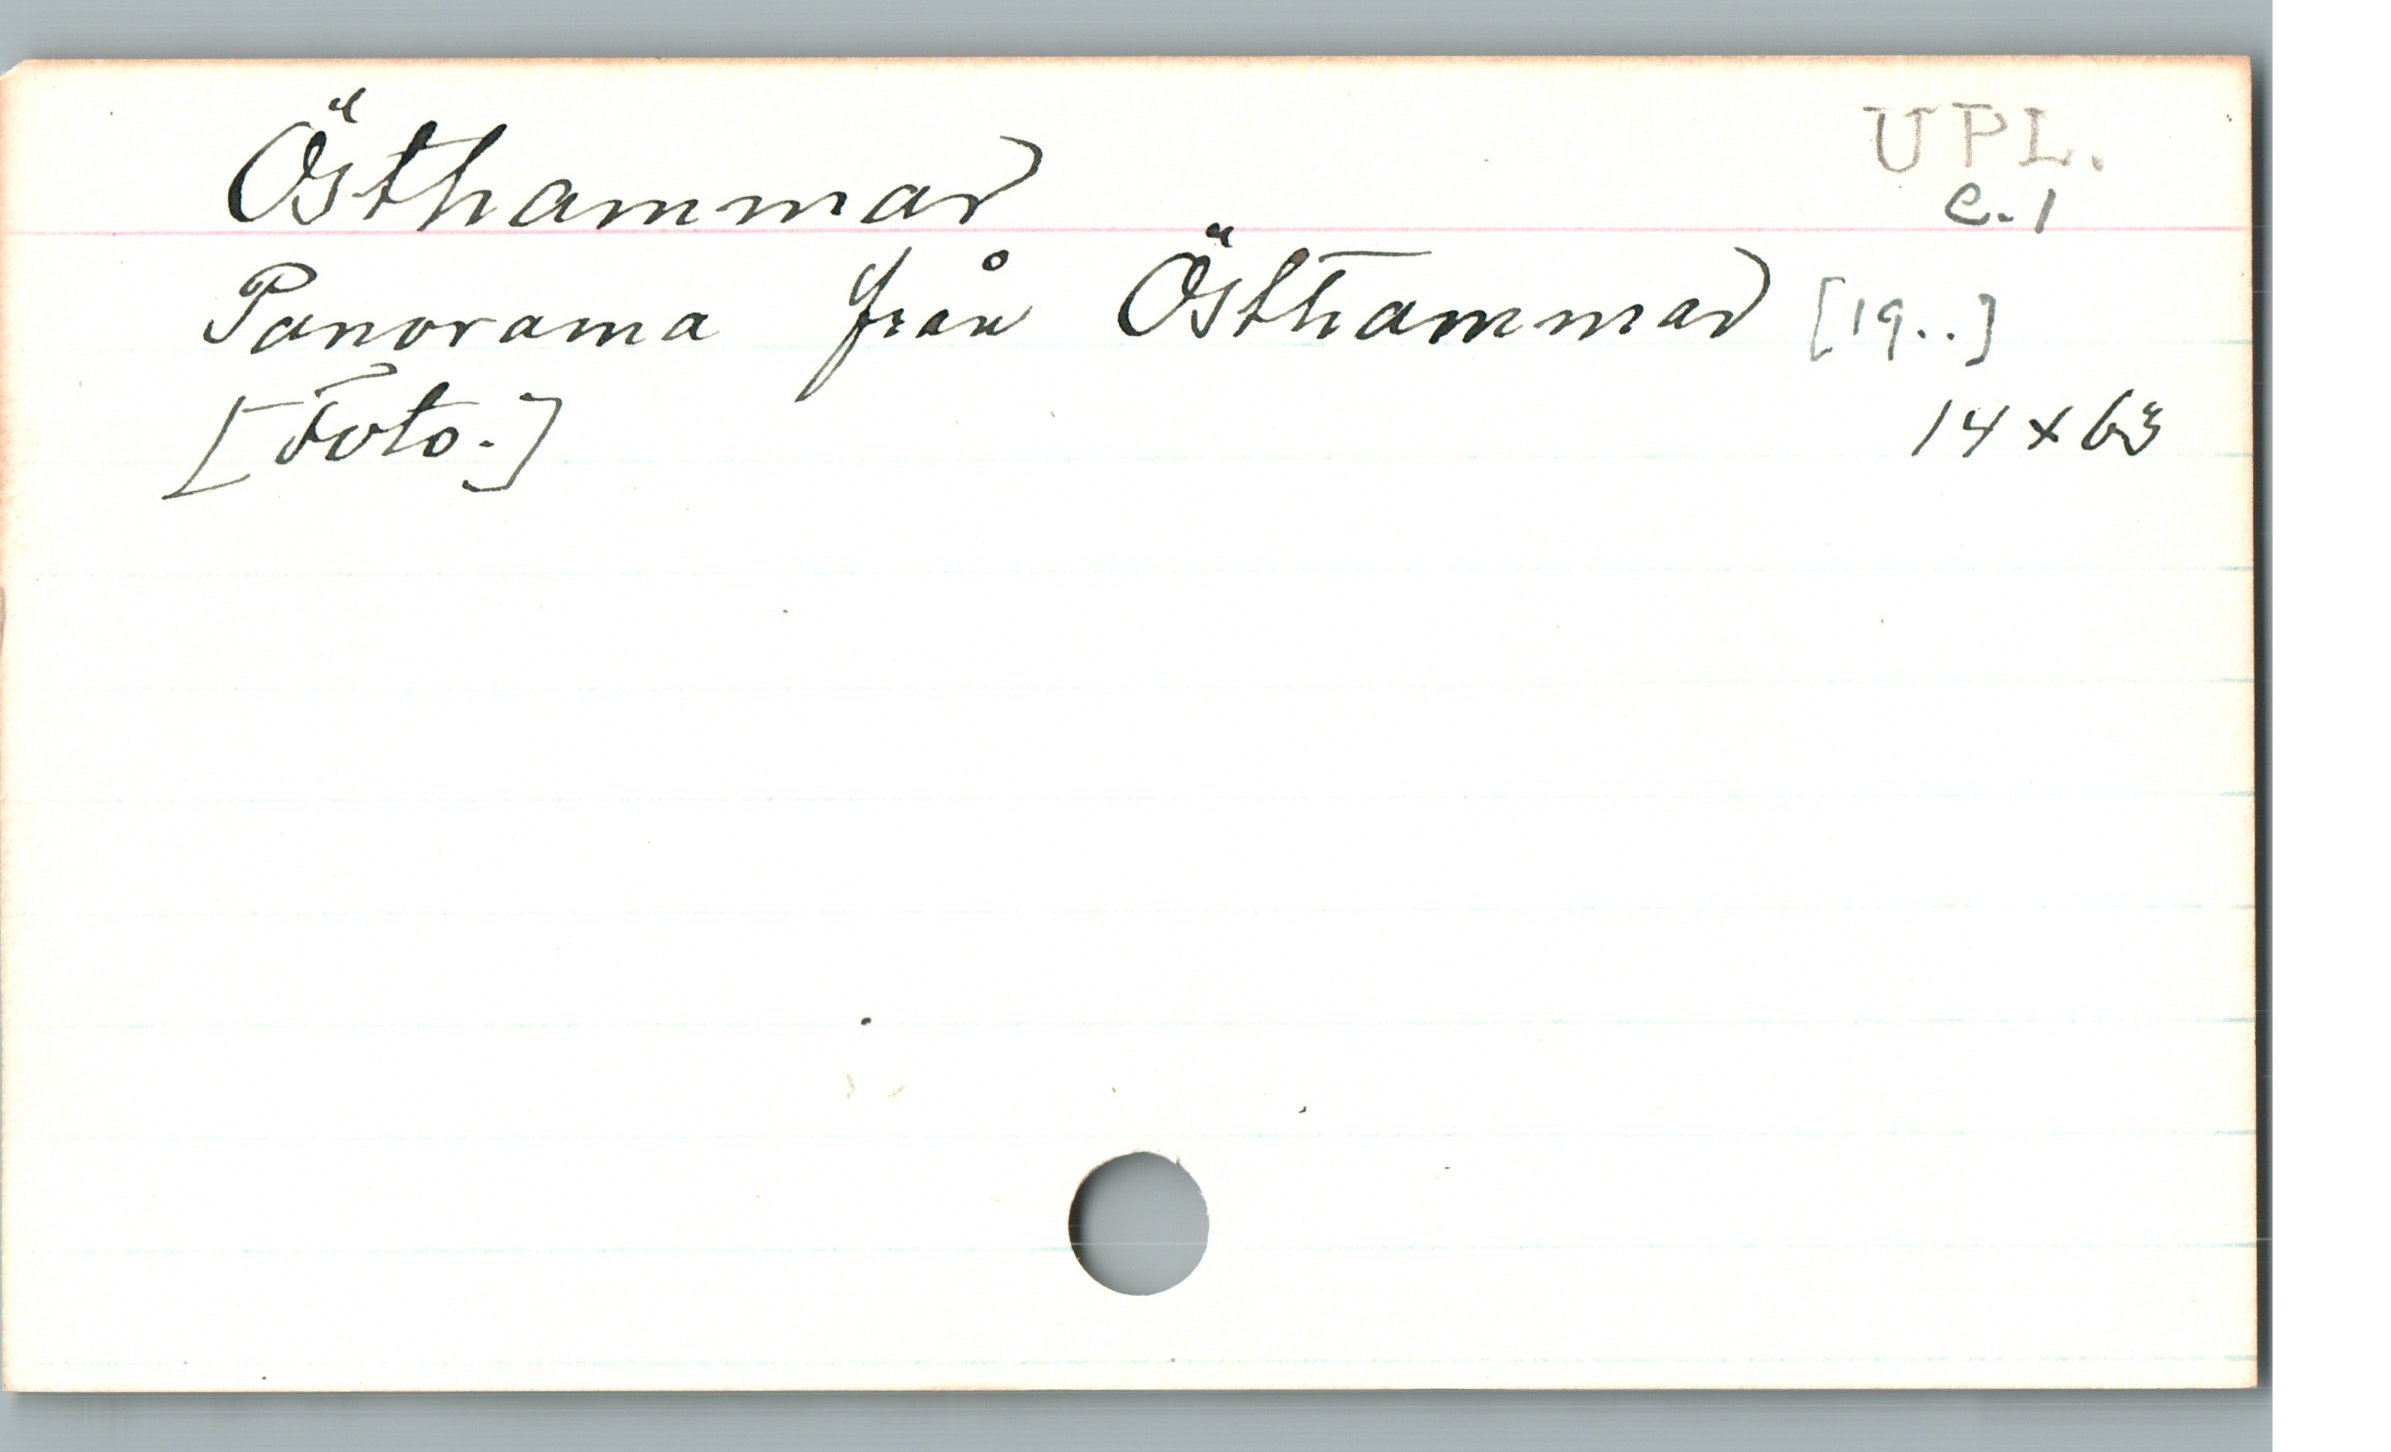 Östhammar UPL.
e. 1
Panorama från Östhammar [19..]
[Foto.] 14 x 63